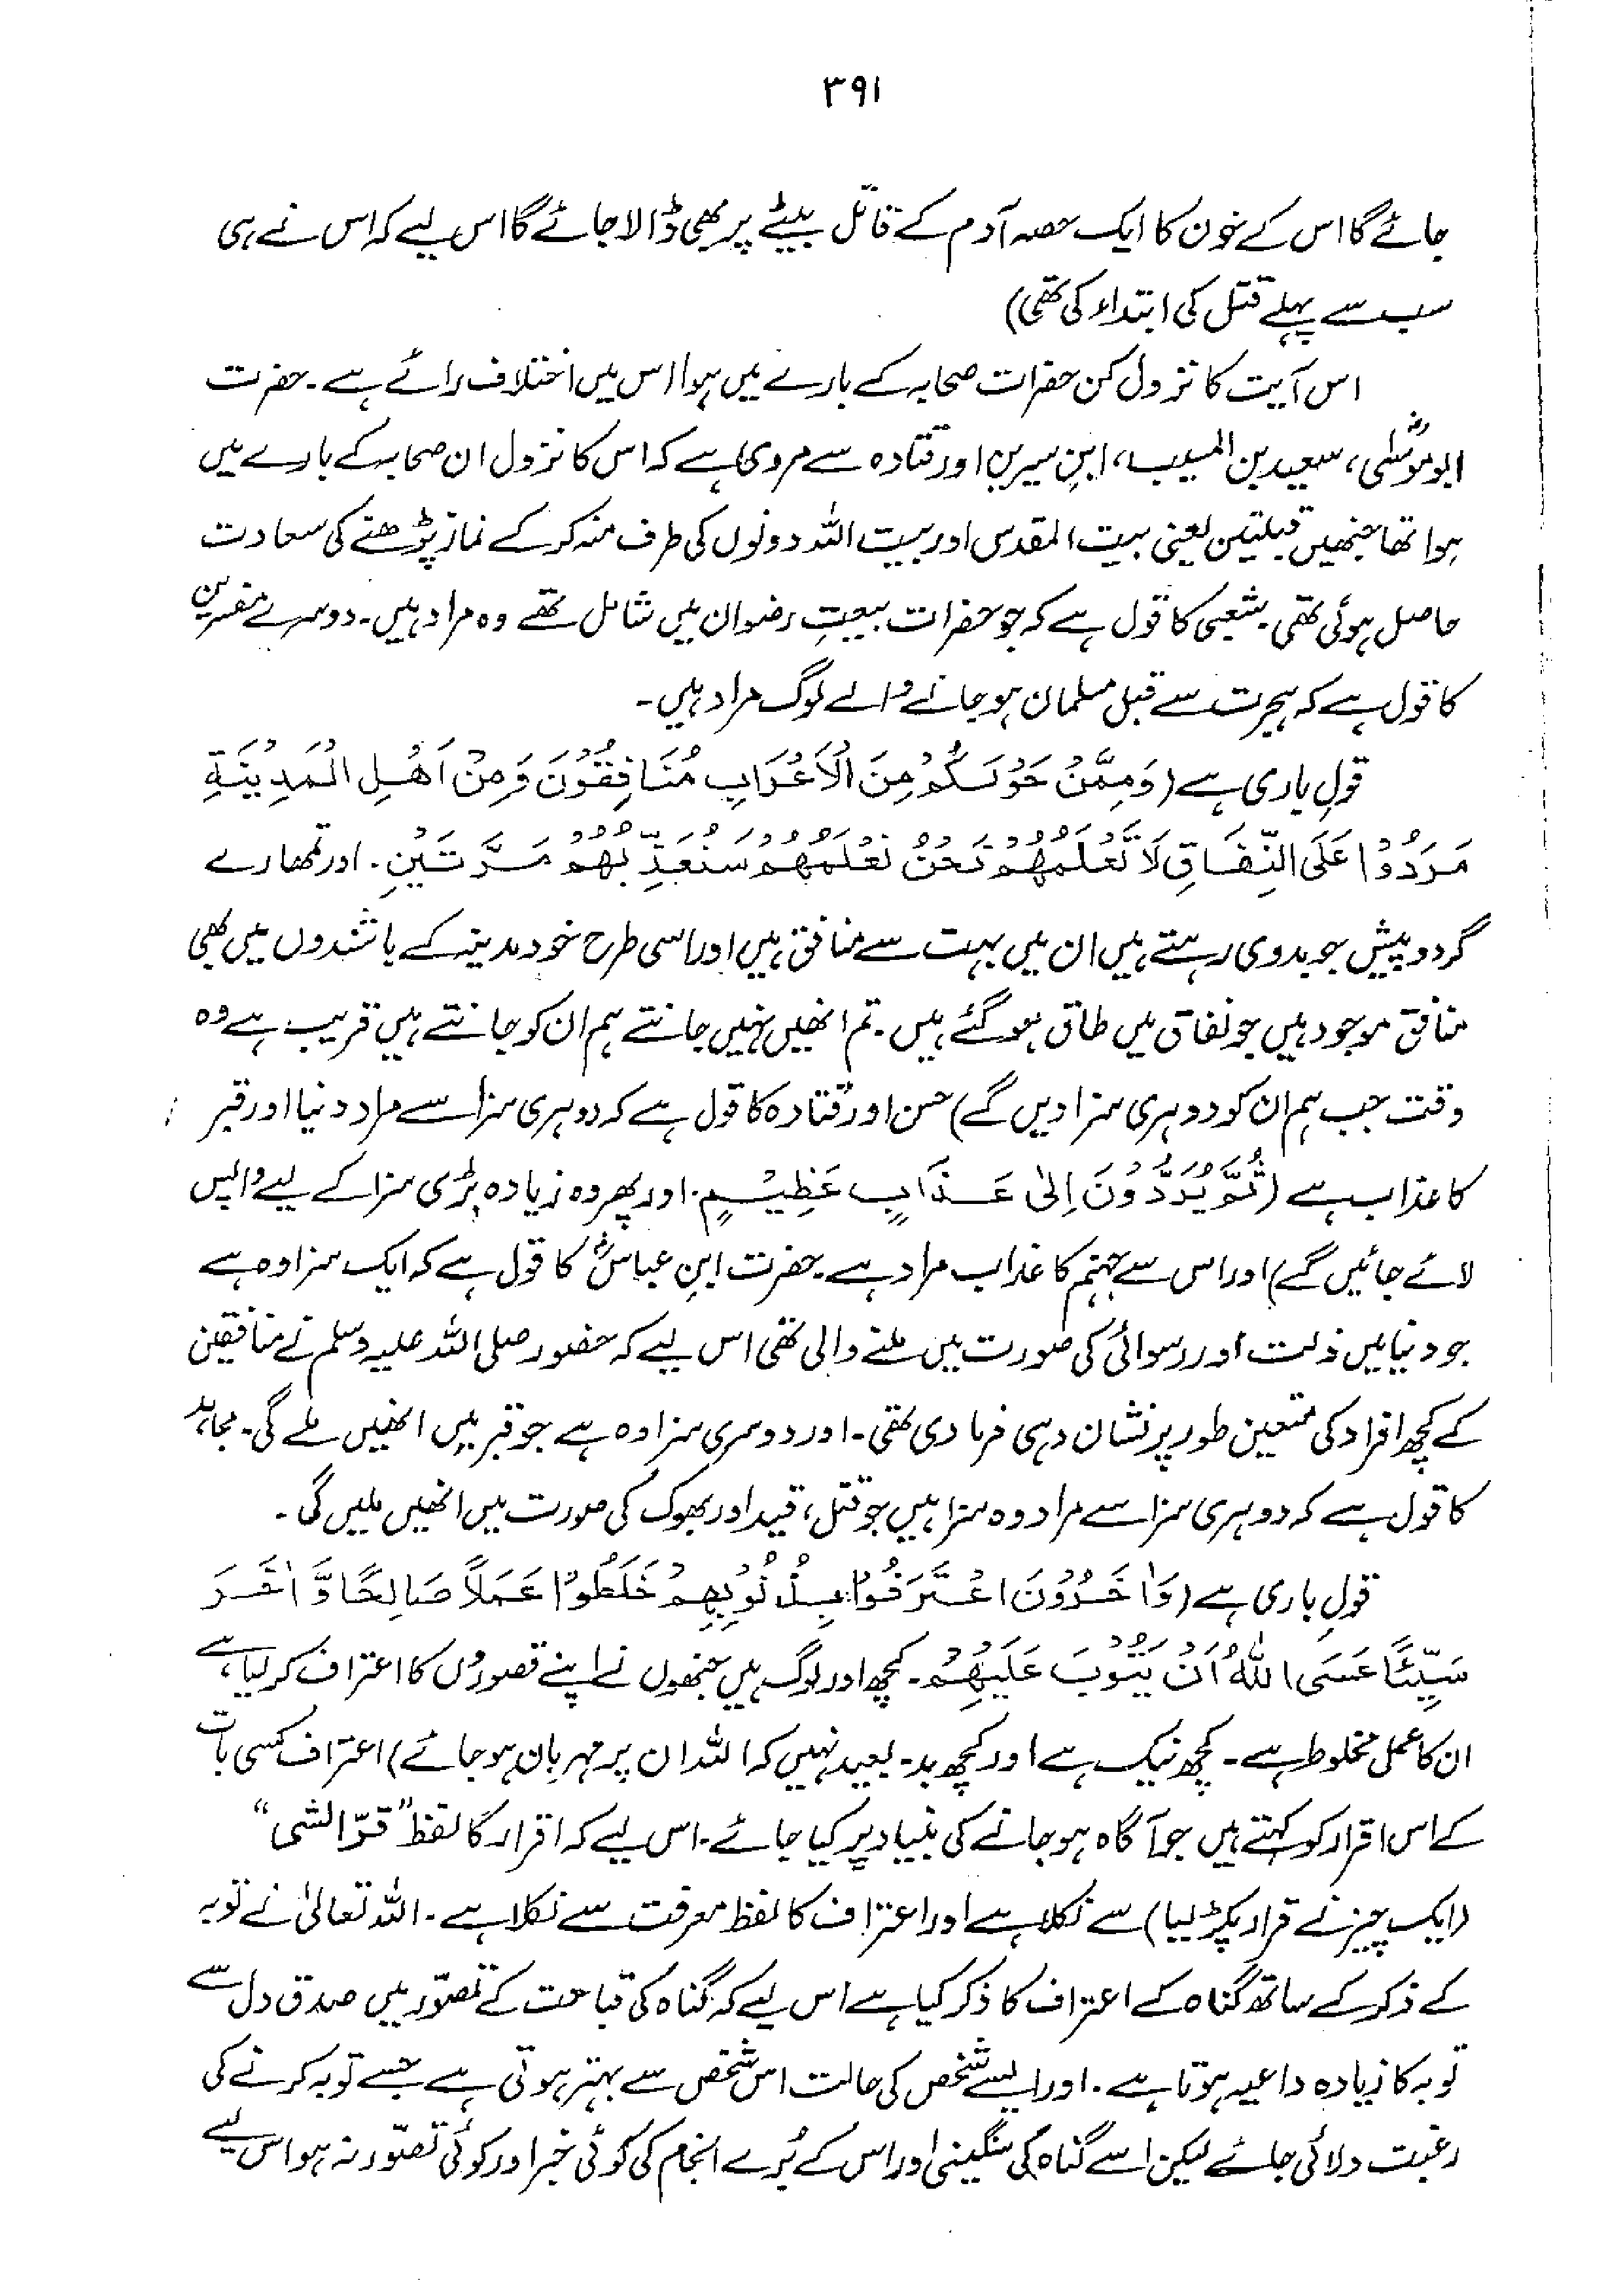 ۳۹۱
جائے گا اس کے خون کا ایک حصہ آدم کے قاتل بیٹے پر بھی ڈالا جائے گا اس لیے کہ اس نے ہی
سب سے پہلے قتل کی ابتداء کی تھی)
اس آیت کا نزول کن حضرات صحابہ کے بارے میں ہوا اس میں اختلاف رائے ہے۔ حضرت
ابو موسٰیؓ، سعید بن المسیب، ابنِ سیرین اور قتادہ سے مروی ہے کہ اس کا نزول ان صحابہ کے بارے میں
ہوا تھا جنھیں قبلتین یعنی بیت المقدس اور بیت اللہ دونوں کی طرف منہ کر کے نماز پڑھنے کی سعادت
حاصل ہوئی تھی۔ شعبی کا قول ہے کہ جو حضرات بیعتِ رضوان میں شامل تھے وہ مراد ہیں۔ دوسرے مفسرین
کا قول ہے کہ ہجرت سے قبل مسلمان ہو جانے والے لوگ مراد ہیں۔
قولِ باری ہے (وَمِمَّنْ حَوْلَكُمْ مِنَ الْاَعْرَابِ مُنَافِقُوْنَ وَمِنْ اَهْلِ الْمَدِيْنَةِ
مَرَدُوْا عَلَى النِّفَاقِ لَا تَعْلَمُهُمْ نَحْنُ نَعْلَمُهُمْ سَنُعَذِّبُهُمْ مَرَّتَيْنِ۔ اور تمھارے
گردو پیش جو بدوی رہتے ہیں ان میں بہت سے منافق ہیں اور اسی طرح خود مدینہ کے باشندوں میں بھی
منافق موجود ہیں جو نفاق میں طاق ہو گئے ہیں۔ تم انھیں نہیں جانتے ہم ان کو جانتے ہیں قریب ہے وہ
وقت جب ہم ان کو دوہری سزا دیں گے) حسن اور قتادہ کا قول ہے کہ دوہری سزا سے مراد دنیا اور قبر
کا عذاب ہے (ثُمَّ يُرَدُّوْنَ اِلىٰ عَذَابٍ عَظِيْمٍ۔ اور پھر وہ زیادہ بڑی سزا کے لیے واپس
لائے جائیں گے) اور اس سے جہنم کا عذاب مراد ہے۔ حضرت ابنِ عباسؓ کا قول ہے کہ ایک سزا وہ ہے
جو دنیا میں ذلت اور رسوائی کی صورت میں ملنے والی تھی اس لیے کہ حضور صلی اللہ علیہ وسلم نے منافقین
کے کچھ افراد کی متعین طور پر نشان دہی فرما دی تھی۔ اور دوسری سزا وہ ہے جو قبر میں انھیں ملے گی۔ مجاہد
کا قول ہے کہ دوہری سزا سے مراد وہ سزا ہیں جو قتل، قید اور بھوک کی صورت میں انھیں ملیں گی۔
قولِ باری ہے (وَاٰخَرُوْنَ اعْتَرَفُوْا بِذُنُوْبِهِمْ خَلَطُوْا عَمَلًا صَالِحًا وَّاٰخَرَ
سَيِّئًا عَسَى اللهُ اَنْ يَّتُوْبَ عَلَيْهِمْ۔ کچھ اور لوگ ہیں جنھوں نے اپنے قصوروں کا اعتراف کر لیا ہے
ان کا عمل مخلوط ہے۔ کچھ نیک ہے اور کچھ بد۔ بعید نہیں کہ اللہ ان پر مہربان ہو جائے) اعتراف کسی بات
کے اس اقرار کو کہتے ہیں جو آگاہ ہو جانے کی بنیاد پر کیا جائے۔ اس لیے کہ اقرار کا لفظ ”قرّ الشی“
(ایک چیز نے قرار پکڑ لیا) سے نکلا ہے اور اعتراف کا لفظ معرفت سے نکلا ہے۔ اللہ تعالیٰ نے توبہ
کے ذکر کے ساتھ گناہ کے اعتراف کا ذکر کیا ہے اس لیے کہ گناہ کی قباحت کے تصوّر میں صدق دل سے
توبہ کا زیادہ داعیہ ہوتا ہے۔ اور ایسے شخص کی حالت اس شخص سے بہتر ہوتی ہے جسے توبہ کرنے کی
رغبت دلائی جائے لیکن اسے گناہ کی سنگینی اور اس کے بُرے انجام کی کوئی خبر اور کوئی تصوّر نہ ہو اس لیے